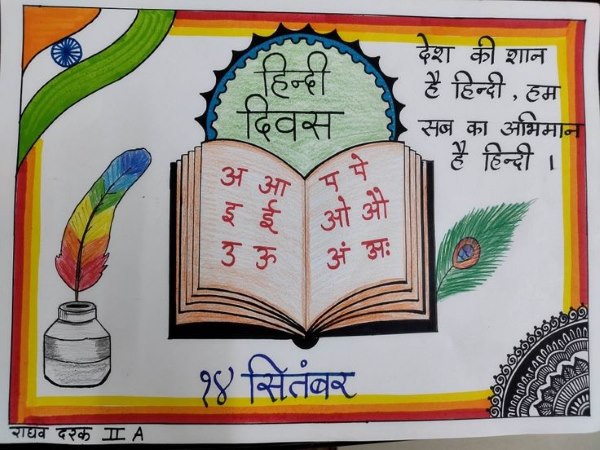 हिन्दी
दिवस
देश की शान
है हिन्दी, हम
सब का अभिमान
है हिन्दी ।
अ आ
इ ई
उ ऊ
ए ऐ
ओ औ
अं अः
१४ सितंबर
राघव दरक II A